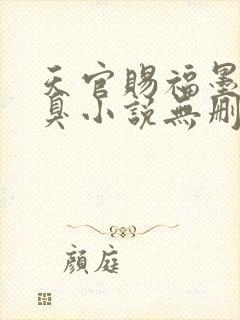 天官賜福墨
臭小説無刪
顔庭